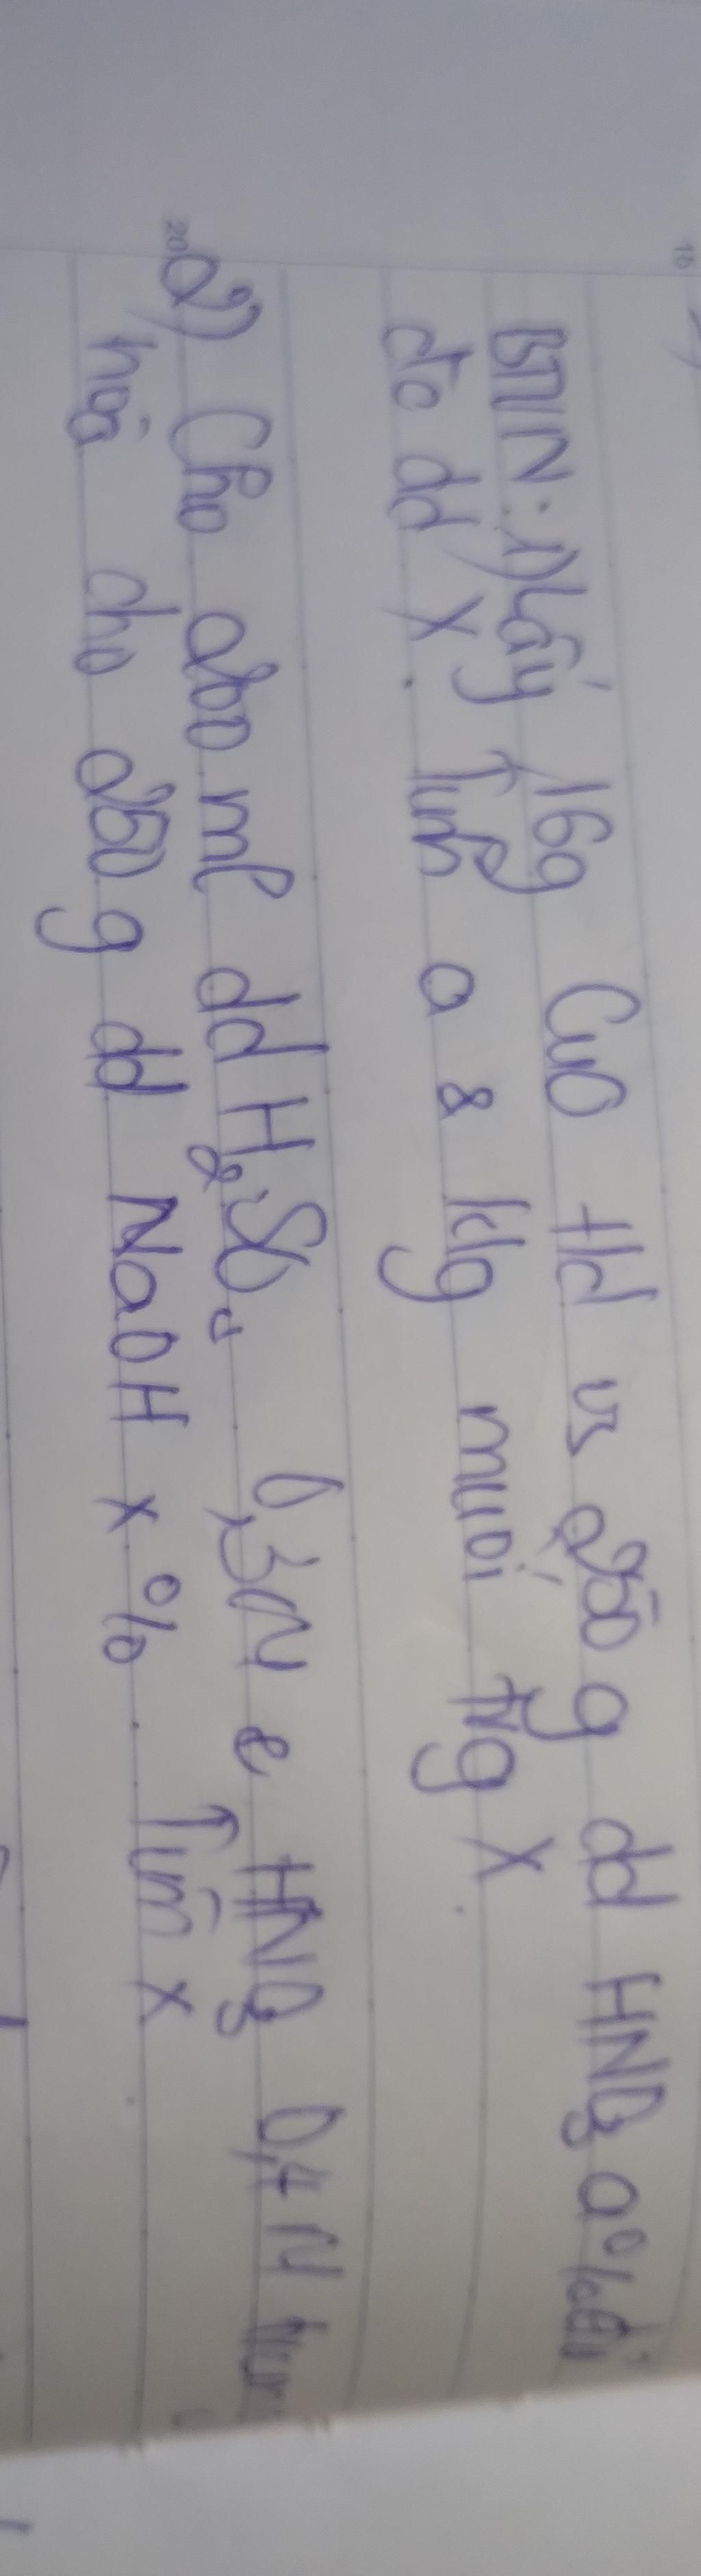 BTVN. 1) Lấy 16g CuO td vs 250 g dd HNO3 a% đủ
đc dd X. Tính a & klg muối trg X.
2) Cho 200 ml dd H2SO4 0,3N & HNO3 0,4N
hoà cho 250 g dd NaOH x%. Tính x.
20